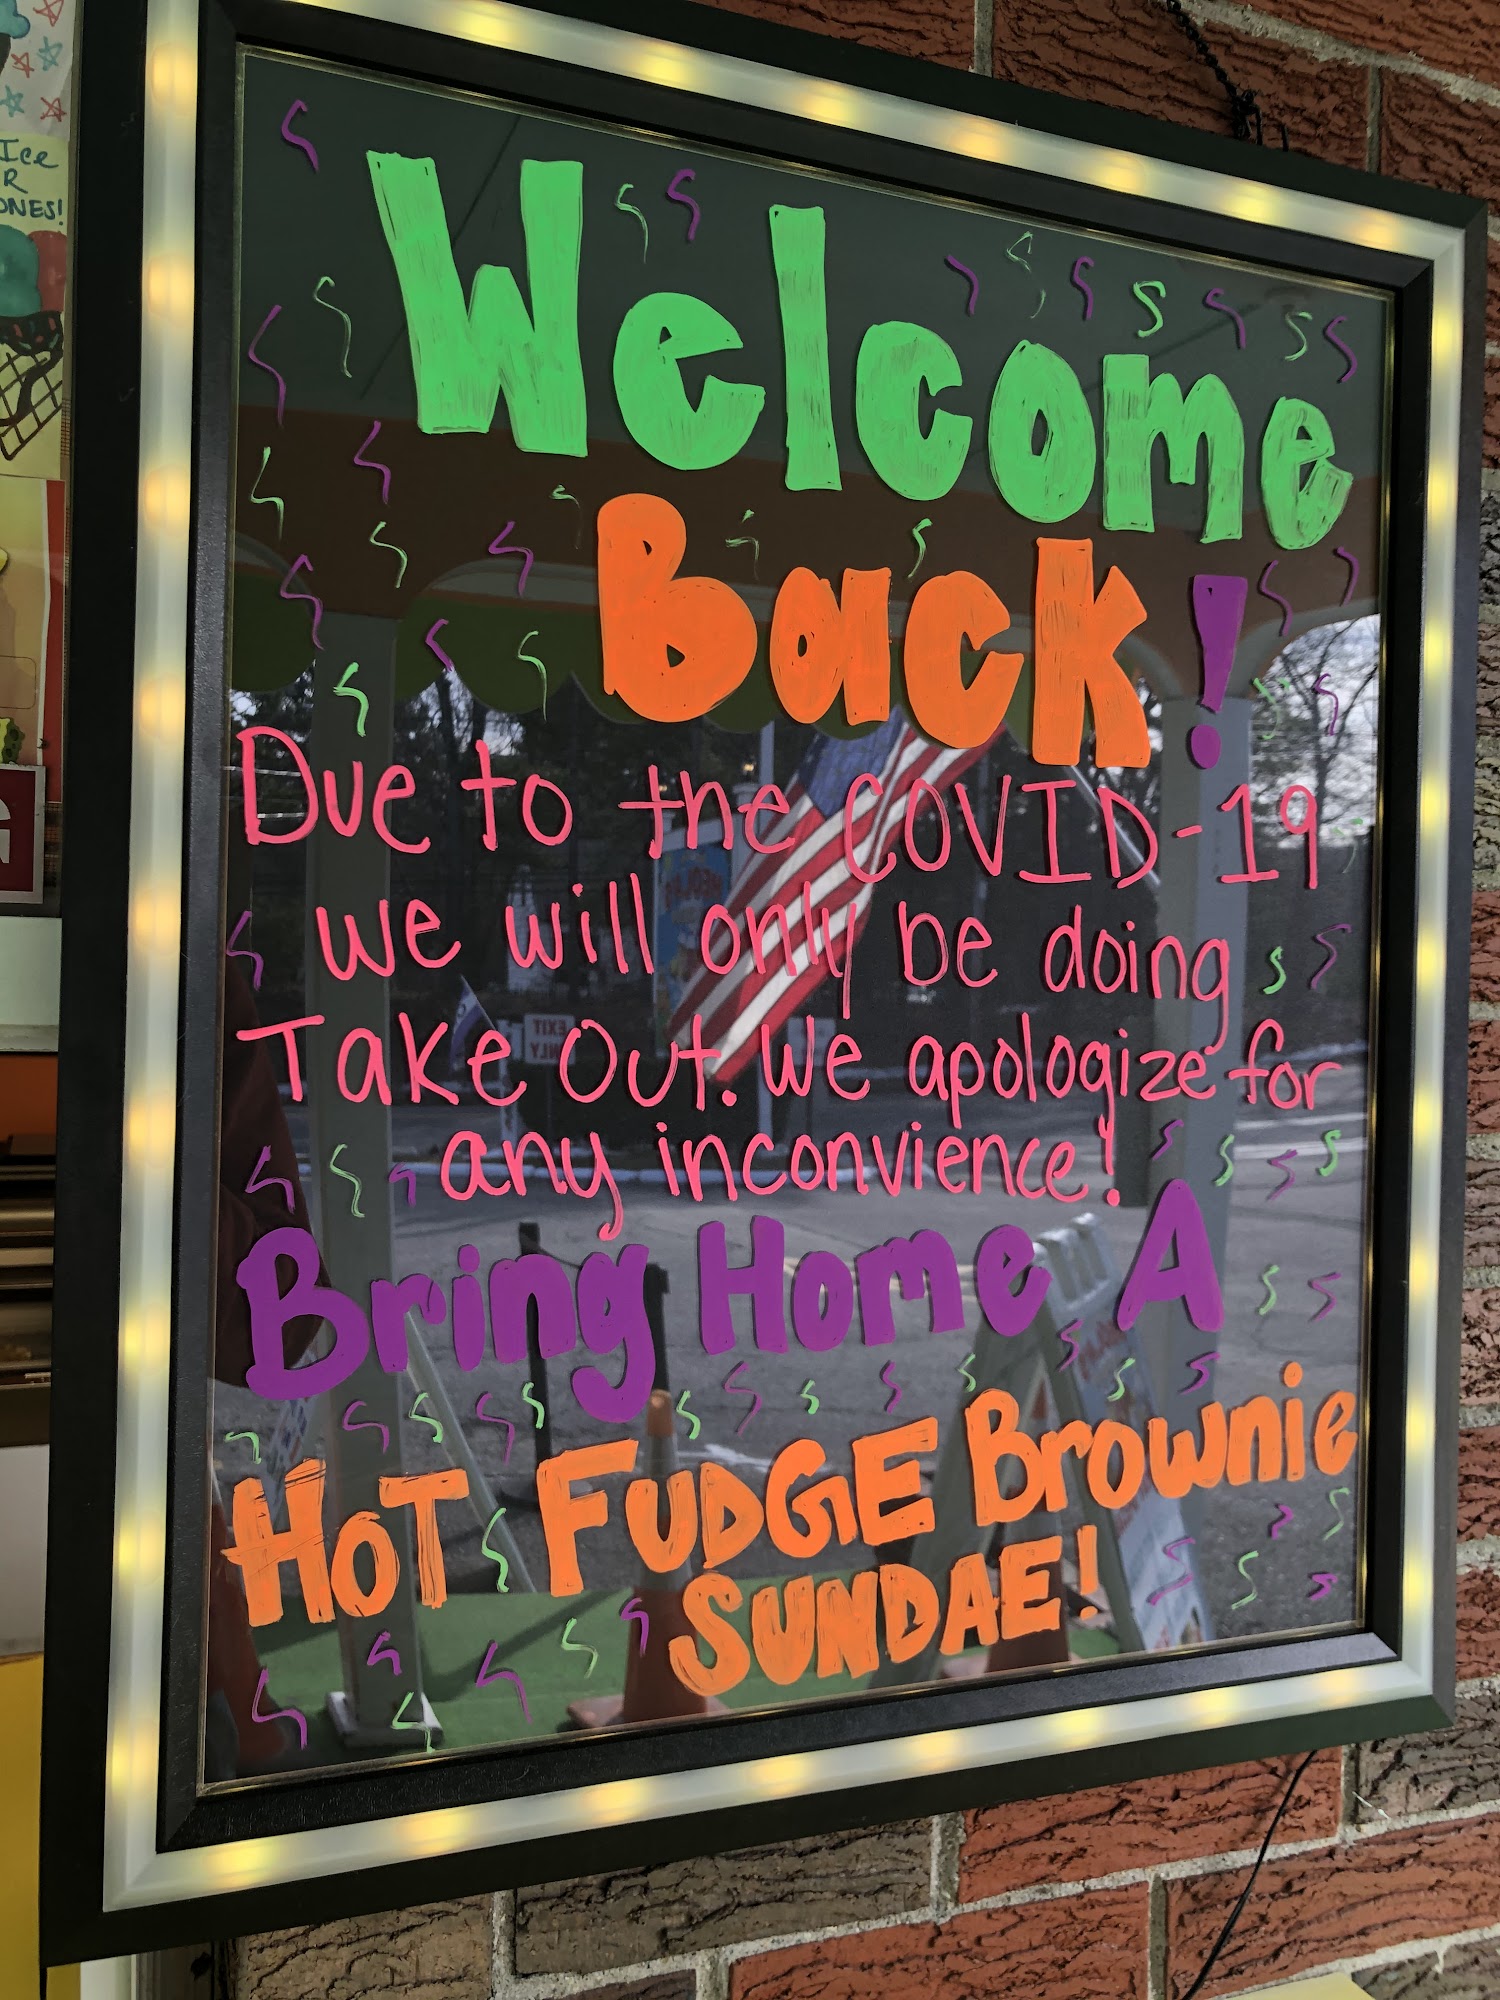 Ice
R
ONES!
Welcome
Back!
Due to the COVID-19
we will only be doing
Take Out. We apologize for
any inconvience!
Bring Home A
HOT FUDGE Brownie
SUNDAE!
EXIT